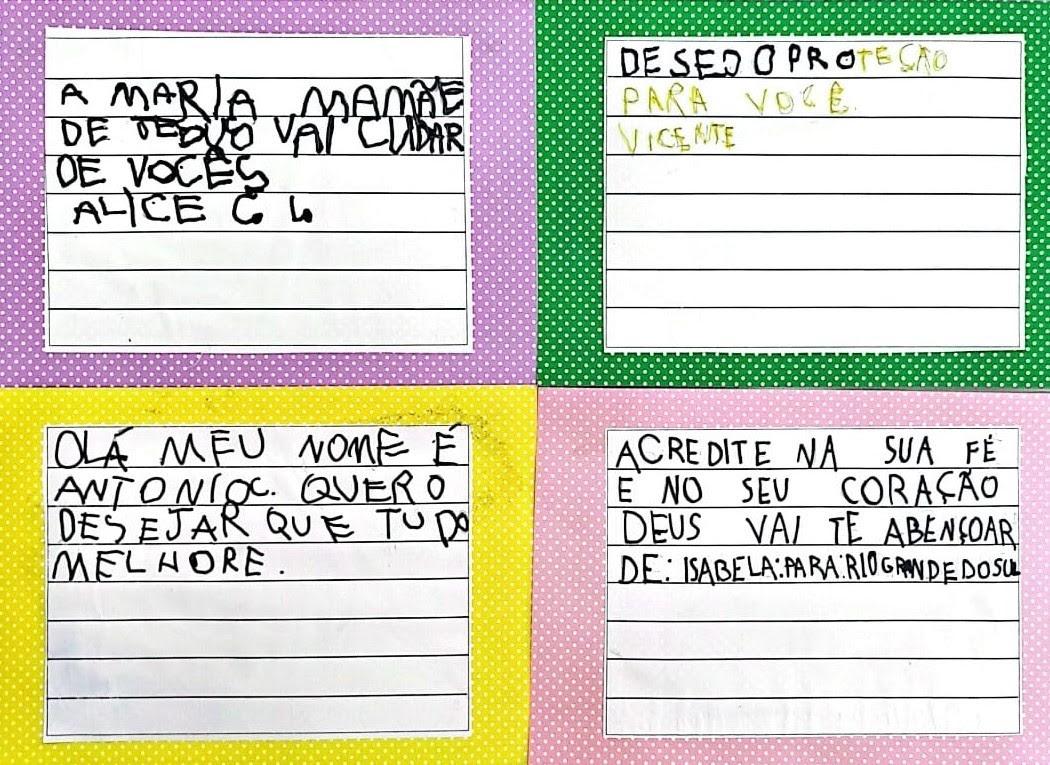 A MARIA MAMÃE
DE JESUS VAI CUIDAR
DE VOCÊS
ALICE C. L.
DESEJO PROTEÇÃO
PARA VOCÊ.
VICENTE
OLÁ MEU NOME É
ANTONIO C. QUERO
DESEJAR QUE TUDO
MELHORE.
ACREDITE NA SUA FÉ
E NO SEU CORAÇÃO
DEUS VAI TE ABENÇOAR
DE: ISABELA: PARA: RIO GRANDE DO SUL